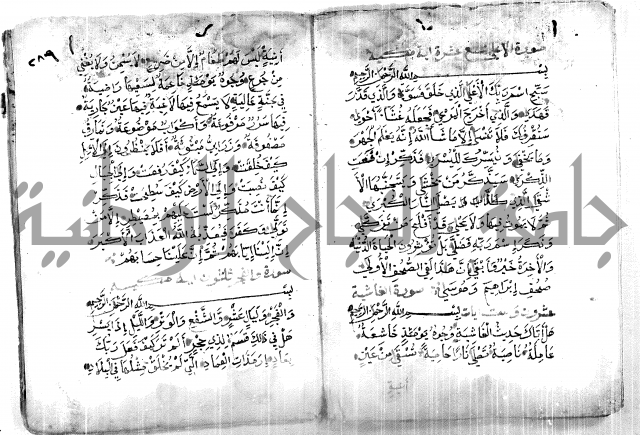 سورة الاعلى تسع عشرة اية مكية
بسم الله الرحمن الرحيم
سبح اسم ربك الاعلى الذي خلق فسوى والذي قدر
فهدى والذي اخرج المرعى فجعله غثاء احوى
سنقرئك فلا تنسى الا ما شاء الله انه يعلم الجهر
وما يخفى ونيسرك لليسرى فذكر ان نفعت
الذكرى سيذكر من يخشى ويتجنبها الا
شقى الذي يصلى النار الكبرى
ثم لا يموت فيها ولا يحيى قد افلح من تزكى
وذكر اسم ربه فصلى بل تؤثرون الحياة الدنيا
والاخرة خير وابقى ان هذا لفي الصحف الاولى
صحف ابراهيم وموسى سورة الغاشية
عشرون وست ايات بسم الله الرحمن الرحيم
هل اتاك حديث الغاشية وجوه يومئذ خاشعة
عاملة ناصبة تصلى نارا حامية تسقى من عين
انية
٢٨٩
انية ليس لهم طعام الا من ضريع لا يسمن ولا يغني
من جوع وجوه يومئذ ناعمة لسعيها راضية
في جنة عالية لا تسمع فيها لاغية فيها عين جارية
فيها سرر مرفوعة واكواب موضوعة ونمارق
مصفوفة وزرابي مبثوثة افلا ينظرون الى الابل
كيف خلقت والى السماء كيف رفعت والى الجبال
كيف نصبت والى الارض كيف سطحت فذكر
انما انت مذكر لست عليهم بمصيطر الا من
تولى وكفر فيعذبه الله العذاب الاكبر
ان الينا ايابهم ثم ان علينا حسابهم
سورة والفجر ثلثون اية مكية
بسم الله الرحمن الرحيم
والفجر وليال عشر والشفع والوتر والليل اذا يسر
هل في ذلك قسم لذي حجر الم تر كيف فعل ربك
بعاد ارم ذات العماد التي لم يخلق مثلها في البلاد
جامعة النجاح الوطنية